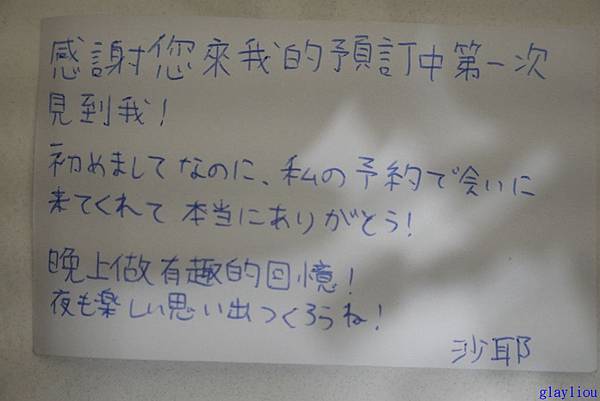 感謝您來我的預訂中第一次
見到我!
初めましてなのに、私の予約で会いに
来てくれて本当にありがとう!
晚上做有趣的回憶!
夜も楽しい思い出つくろうね!
沙耶
glayliou